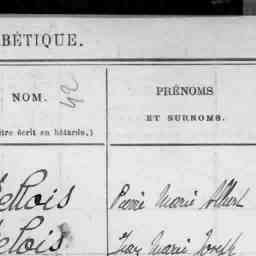 BÉTIQUE.
NOM. 42
être écrit en bâtarde.)
PRÉNOMS
ET SURNOMS.
Pierre Marie Albert
Jean Marie Joseph